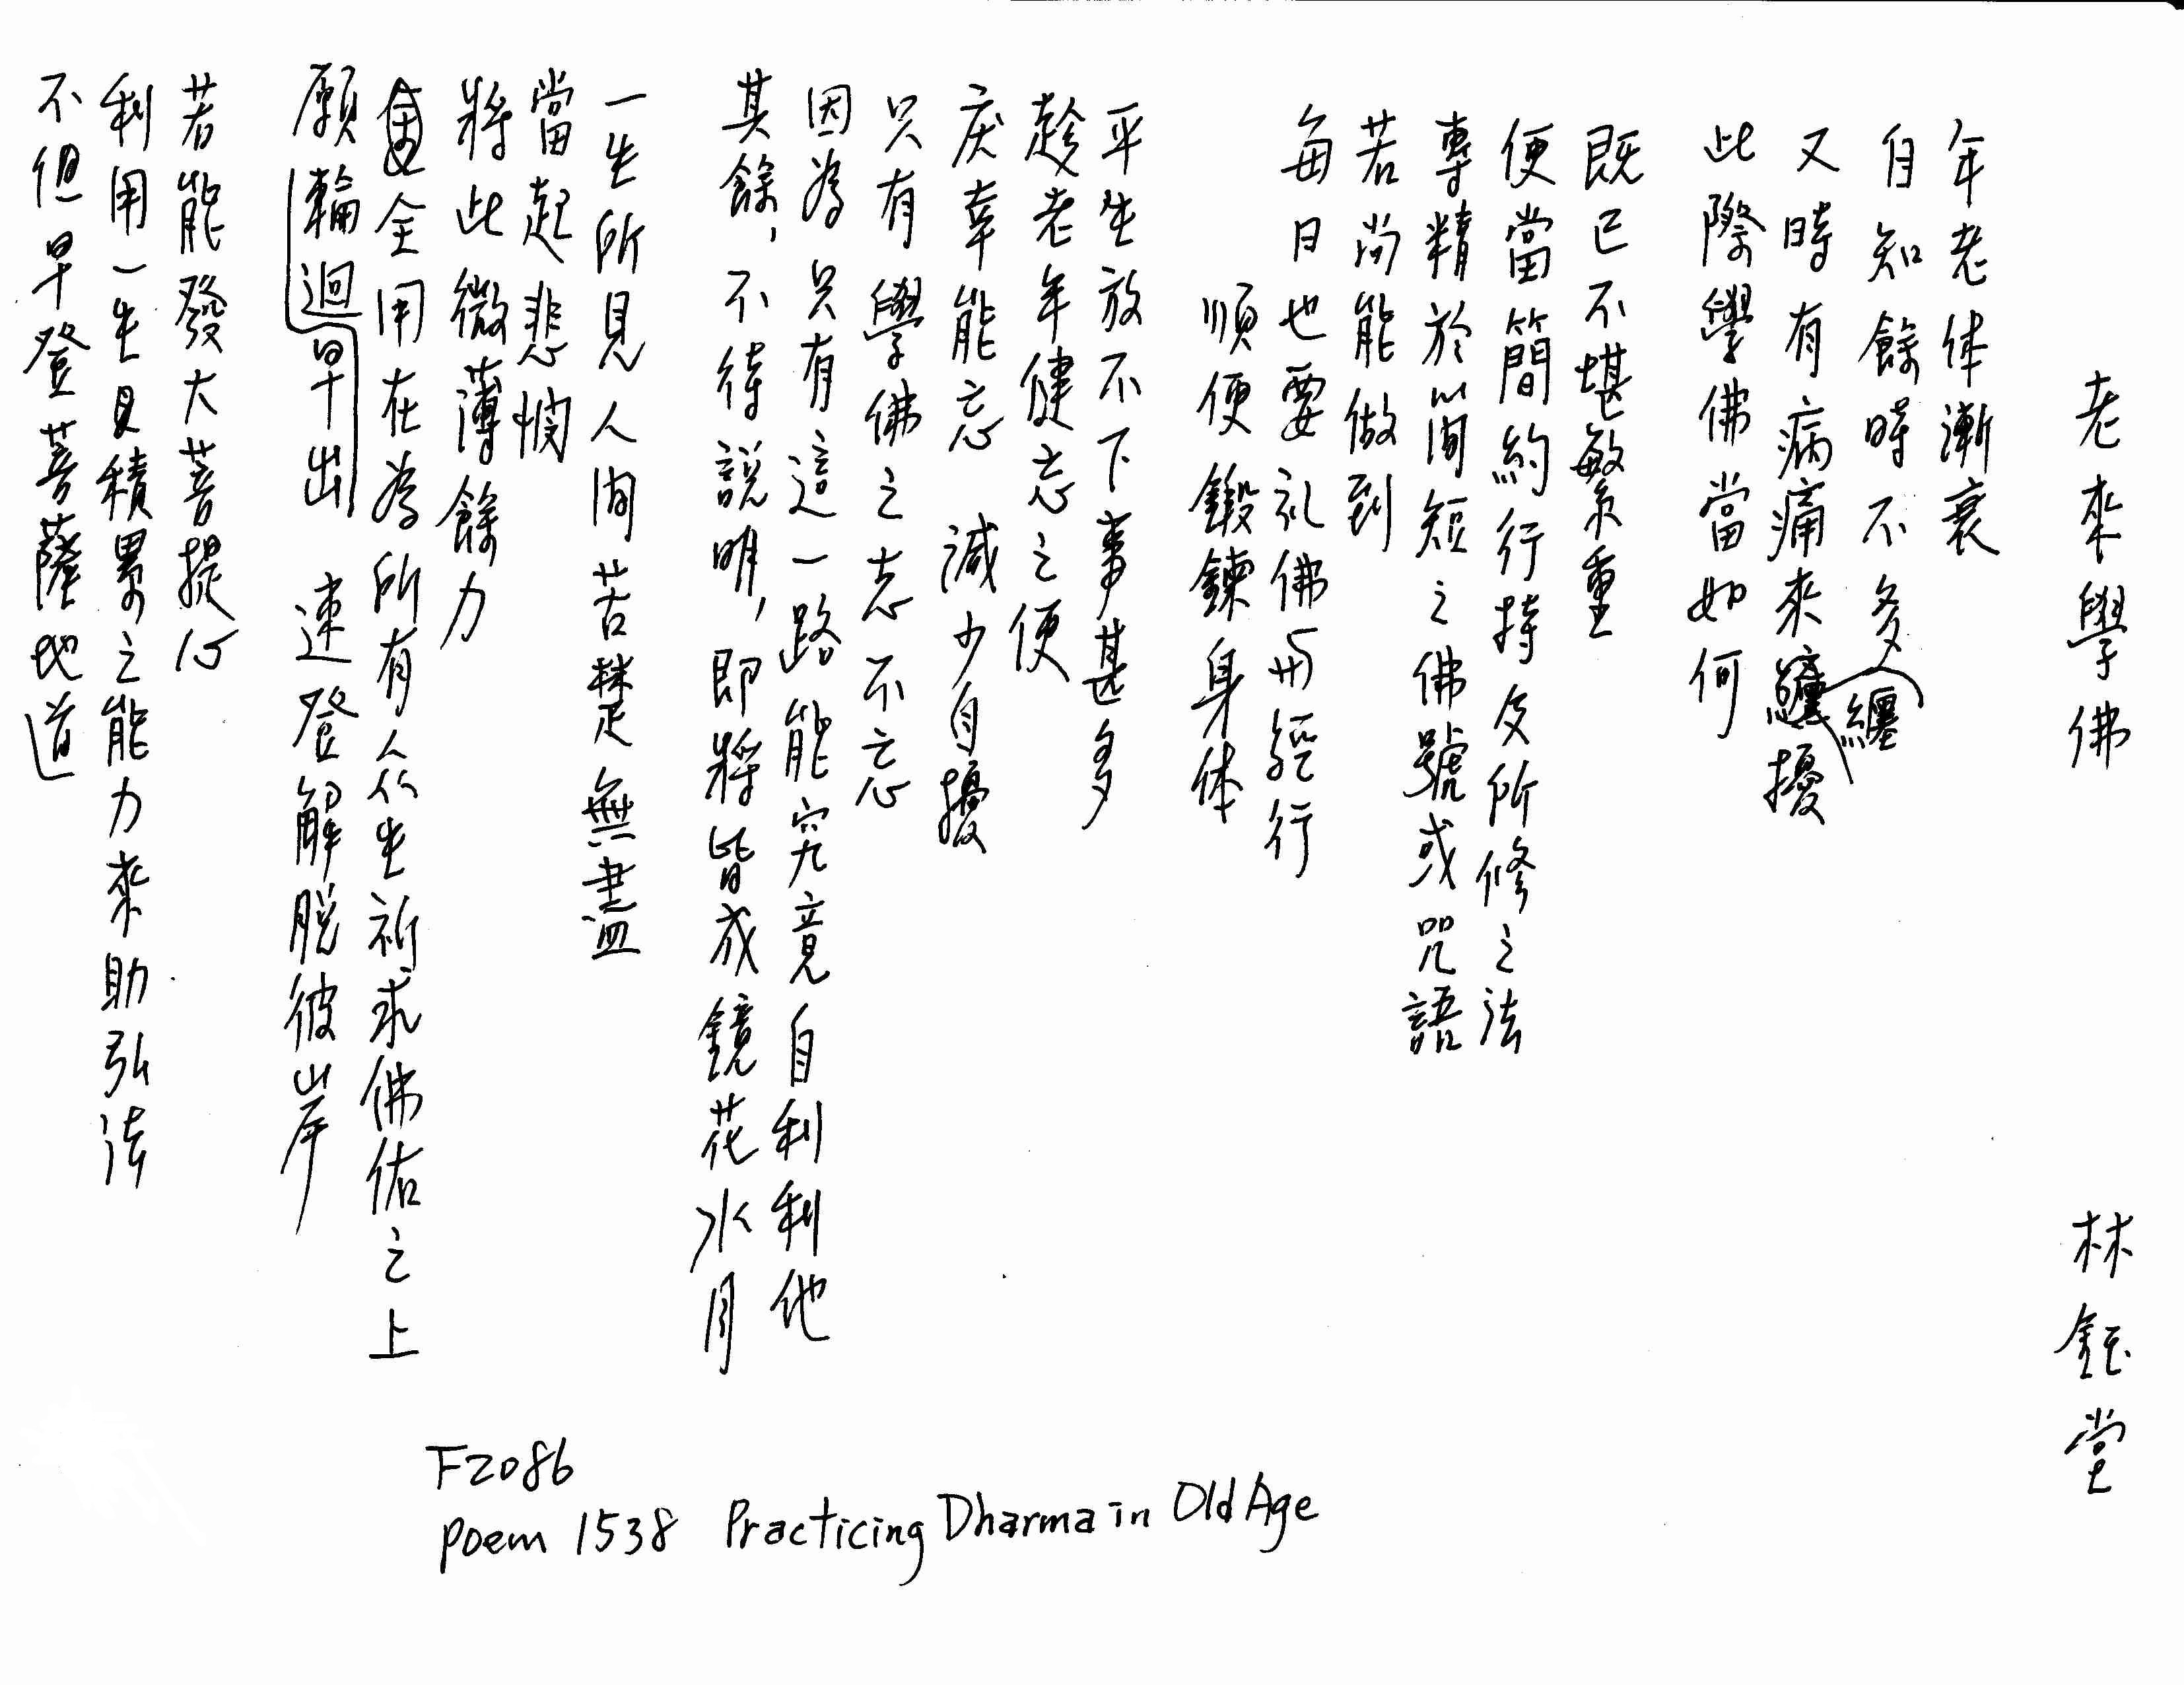 老來學佛 林鈺堂
年老体漸衰
自知餘時不多
又時有病痛來纏擾
纏
此際學佛當如何
既已不堪繁重
便當簡約行持及所修之法
專精於簡短之佛號或咒語
若尚能做到
每日也要礼佛与經行
順便鍛鍊身体
平生放不下事甚多
趁老年健忘之便
庆幸能忘 減少自擾
只有學佛之志不忘
因為只有這一路能究竟自利利他
其餘,不待說明,即將皆成鏡花水月
一生所見人间苦楚無盡
當起悲憫
將此微薄餘力
全用在為所有众生祈求佛佑之上
願輪迴早出 速登解脫彼岸
若能發大菩提心
利用一生具積累之能力來助弘法
不但早登菩薩地道
F2086
Poem 1538 Practicing Dharma in Old Age